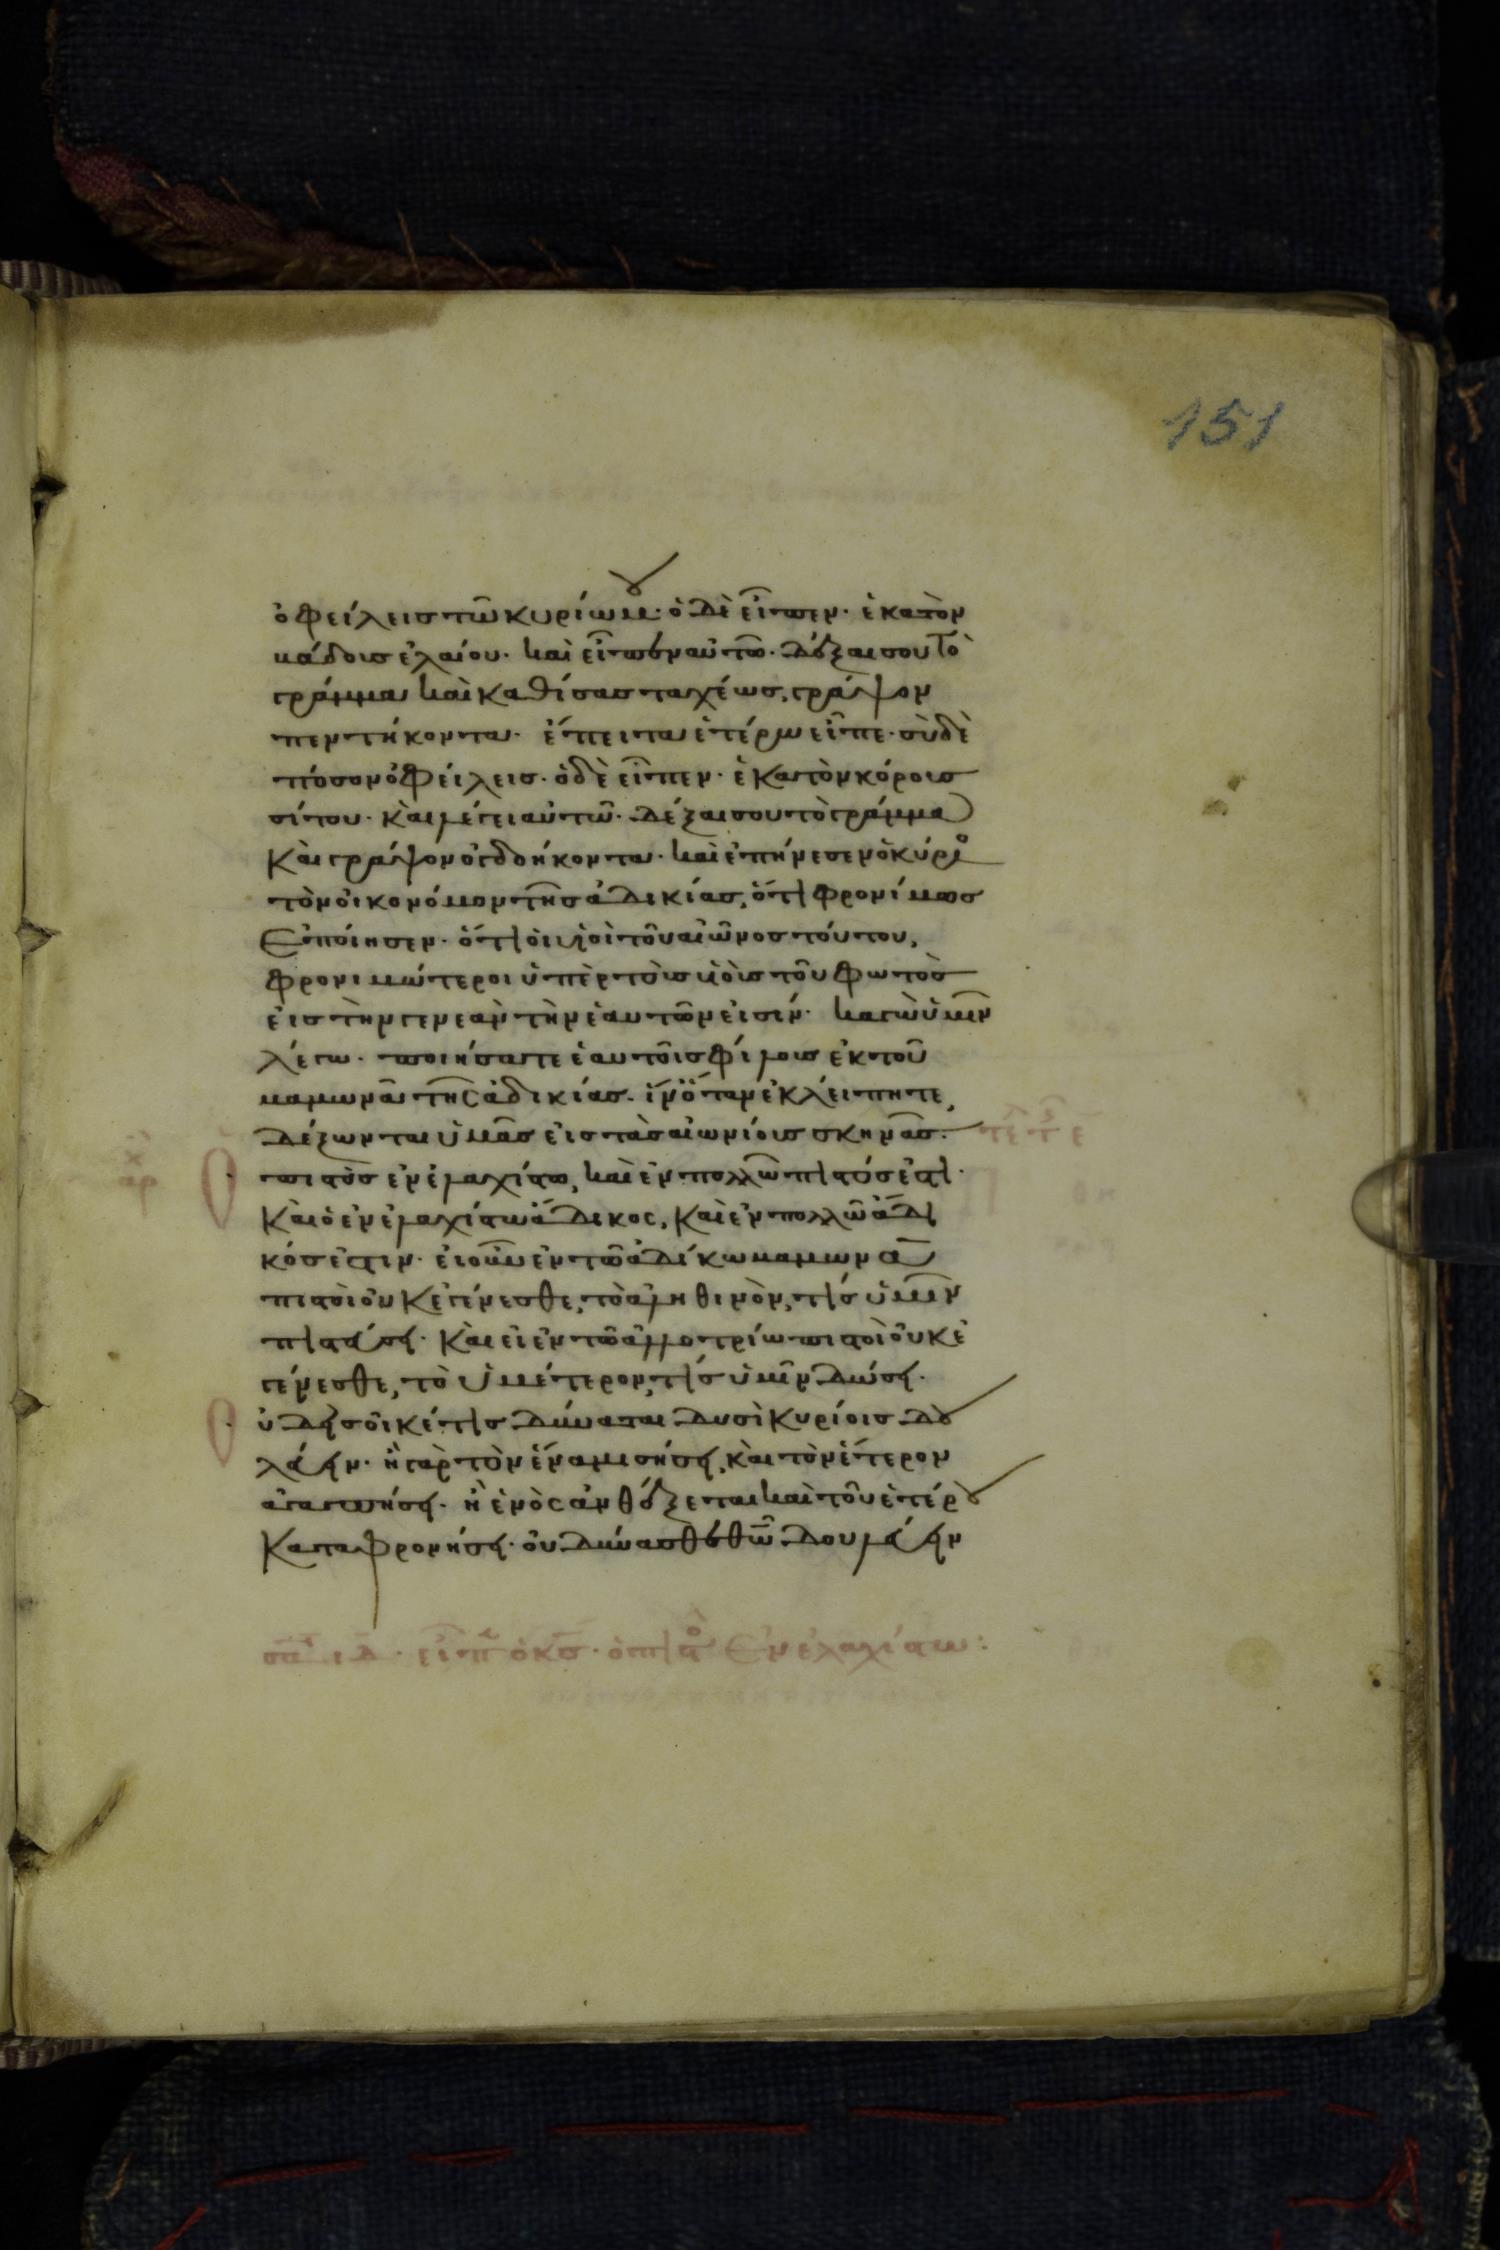 151
ὀφείλεις τῶ κυρίω μου· ὁ δὲ εἶπεν· ἑκατὸν
κάδους ἐλαίου· καὶ εἶπεν αὐτῶ· δέξαι σου τὸ
γράμμα καὶ καθίσας ταχέως, γράψον
πεντήκοντα· ἔπειτα ἑτέρω εἶπε· σὺ δὲ
πόσον ὀφείλεις· ὁ δὲ εἶπεν· ἑκατὸν κόρους
σίτου· καὶ λέγει αὐτῶ· δέξαι σου τὸ γράμμα
καὶ γράψον ὀγδοήκοντα· καὶ ἐπήνεσεν ὁ κύριος
τὸν οἰκονόμον τῆς ἀδικίας, ὅτι φρονίμως
ἐποίησεν· ὅτι οἱ υἱοὶ τοῦ αἰῶνος τούτου,
φρονιμώτεροι ὑπὲρ τοὺς υἱοὺς τοῦ φωτὸς
εἰς τὴν γενεὰν τὴν ἑαυτῶν εἰσίν· καγὼ ὑμῖν
λέγω· ποιήσατε ἑαυτοῖς φίλους ἐκ τοῦ
μαμωνᾶ τῆς ἀδικίας· ἵν᾽ ὅταν ἐκλείπητε,
δέξωνται ὑμᾶς εἰς τὰς αἰωνίους σκηνάς·
πιστὸς ἐν ἐλαχίστω, καὶ ἐν πολλῶ πιστός ἐστι·
καὶ ὁ ἐν ἐλαχίστω ἄδικος, καὶ ἐν πολλῶ ἄδι
κός ἐστιν· εἰ οὖν ἐν τῶ ἀδίκω μαμωνᾶ
πιστοὶ οὐκ ἐγένεσθε, τὸ ἀληθινὸν, τίς ὑμῖν
πιστεύσει· καὶ εἰ ἐν τῶ ἀλλοτρίω πιστοὶ οὐκ ἐ
γένεσθε, τὸ ὑμέτερον, τίς ὑμῖν δώσει·
ὐδεὶς οἰκέτης δύναται δυσὶ κυρίοις δου
λεύειν· ἢ γὰρ τὸν ἕνα μισήσει, καὶ τὸν ἕτερον
ἀγαπήσει· ἢ ἑνὸς ἀνθέξεται καὶ τοῦ ἑτέρου
καταφρονήσει· οὐ δύνασθε θῶ δουλεύειν
εἶπ ὁ κς· ὁ πιστὸς ἐν ἐλαχίστω: